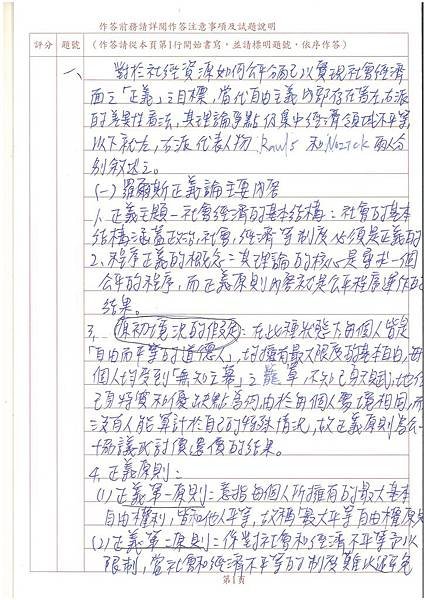 作答前務請詳閱作答注意事項及試題說明
評分 題號 (作答請從本頁第1行開始書寫,並請標明題號,依序作答)
一、 對於社經資源如何公平分配以實現社會經濟
面之「正義」之目標,當代自由主義內部存在著左、右派
的差異性看法,其理論爭點仍集中經濟領域不平等,
以下就左、右派代表人物 Rawls 和 Nozick 兩人分
別敘述之。
(一)羅爾斯正義論主要內容
1、正義主題-社會經濟的基本結構:社會的基本
結構涵蓋政治,社會,經濟等制度必須是正義的
2、程序正義的概念:其理論的核心是尋求一個
公平的程序,而正義原則內容就是公平程序運作的
結果。
3、原初境況的假設:在此種狀態下每個人皆是
「自由而平等的道德人」,均擁有最大限度的基本自由,每
個人均受到「無知之幕」之籠罩,不知己身天賦,地位
己身特質和優缺點為何,由於每個人處境相同,而
沒有人能算計於自己的特殊情況,故正義原則為公
協議或討價還價的結果。
4、正義原則:
(1)正義第一原則:意指每個人所擁有的最大基本
自由權利,皆和他人平等,故稱「最大平等自由權原
(2)正義第二原則:係對社會和經濟不平等予以
限制,當社會和經濟不平等的制度難以避免
第1頁